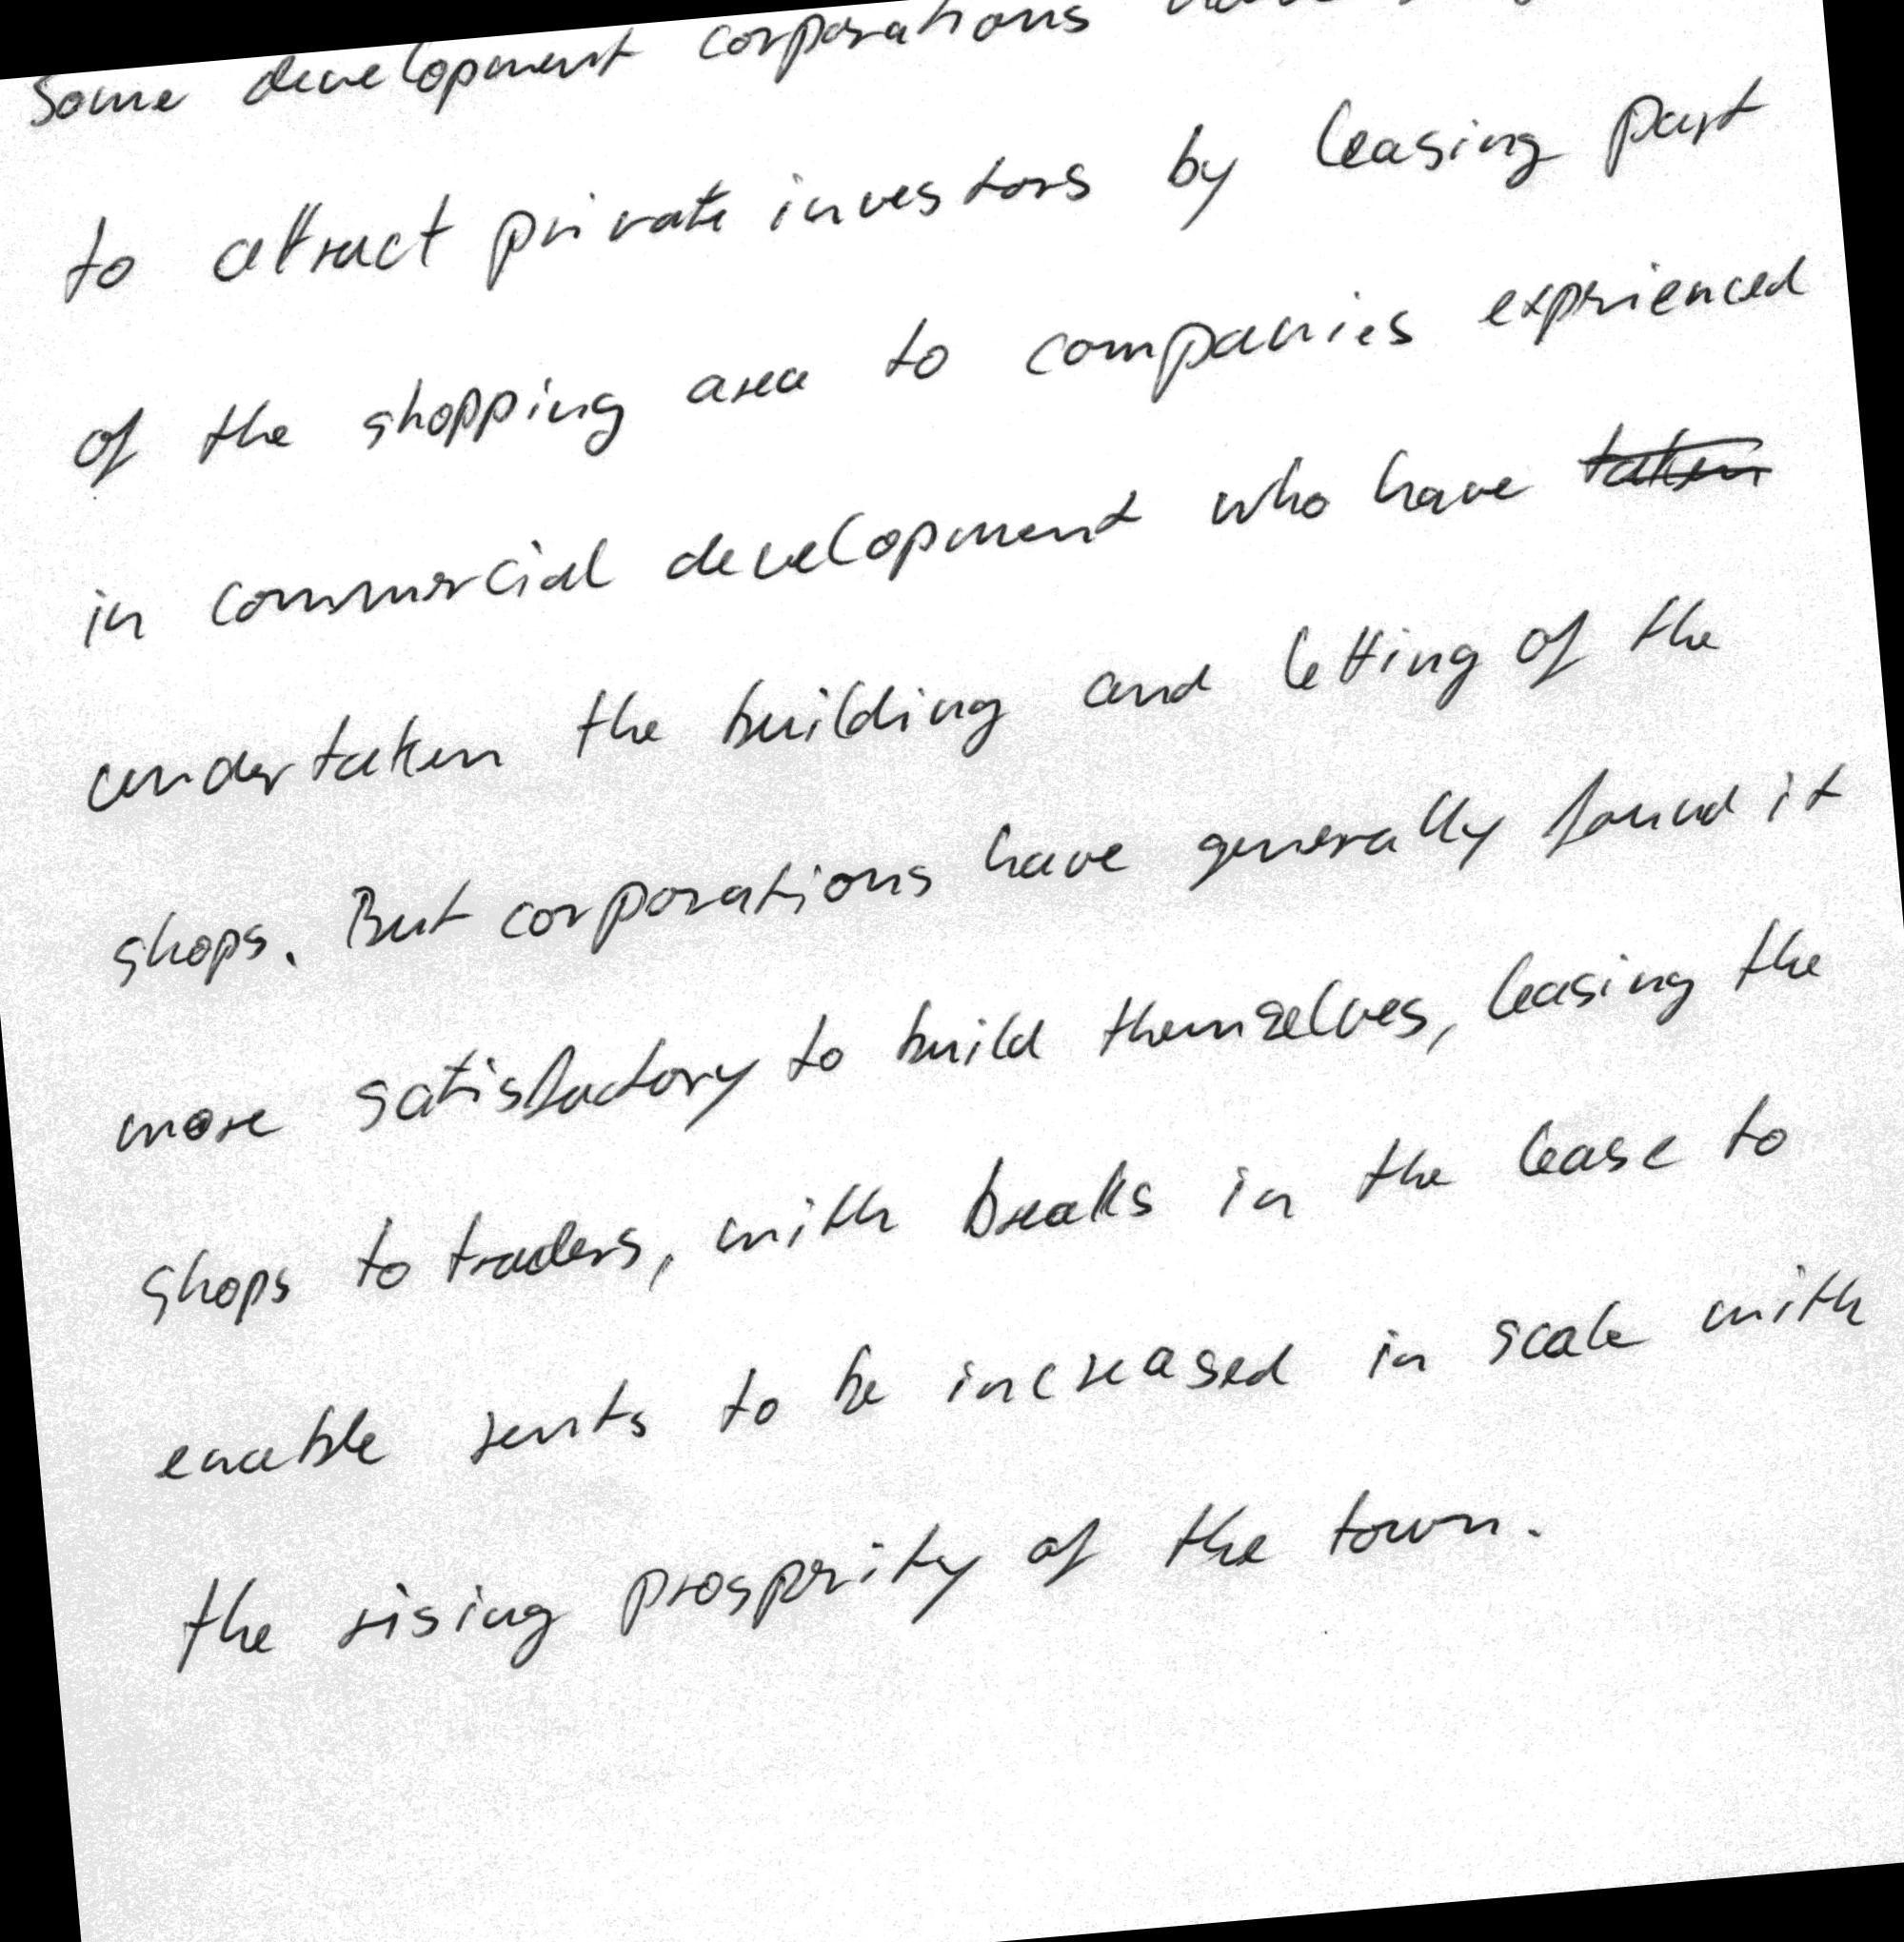 Some development corporations
to attract private investors by leasing part
of the shopping area to companies exprienced
in commercial development who have taken
undertaken the building and letting of the
shops. But corporations have generally found it
more satisfactory to build themselves, leasing the
shops to traders, with breaks in the lease to
enable rents to be increased in scale with
the rising prosprity of the town.